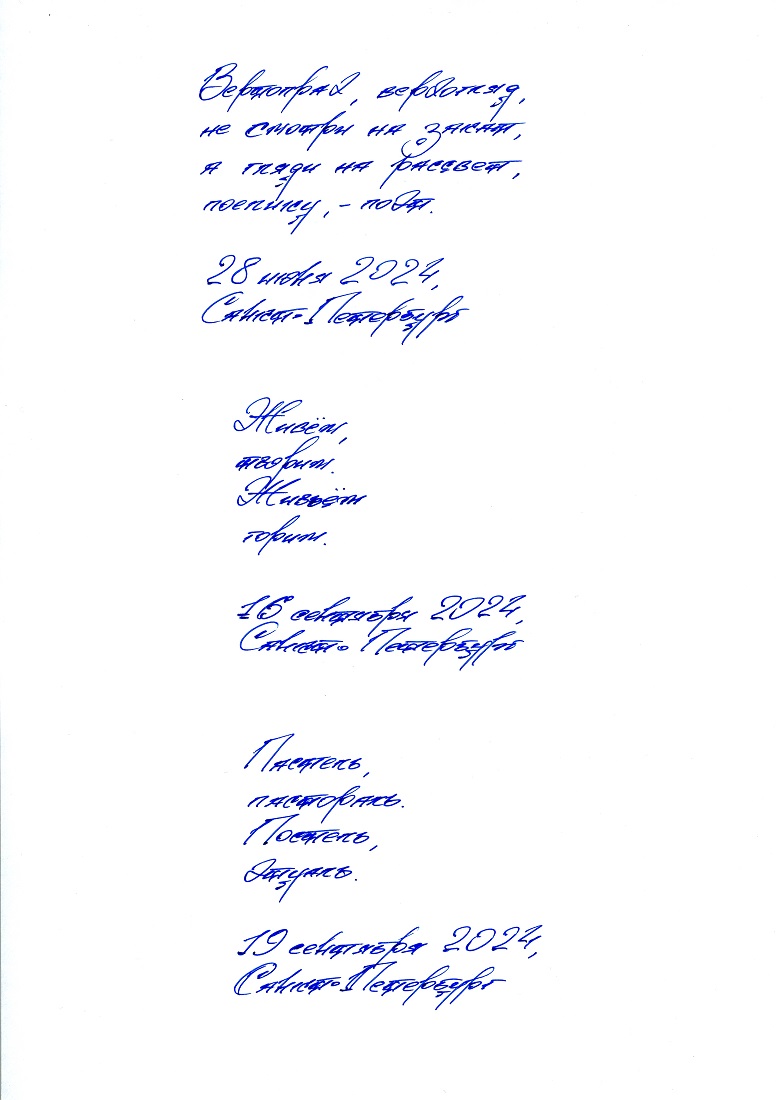 Вертопрах, верхогляд,
не смотри на закат,
а гляди на рассвет,
поелику, – поэт.
28 июня 2024,
Санкт-Петербург
Живём,
творим.
Живьём
горим.
16 сентября 2024,
Санкт-Петербург
Пастель,
пастораль.
Постель,
этуаль.
19 сентября 2024,
Санкт-Петербург